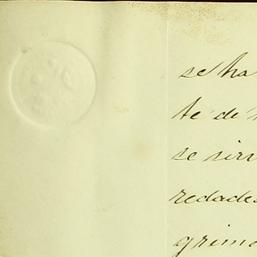 se ha
te de
se sirv
redades
grima